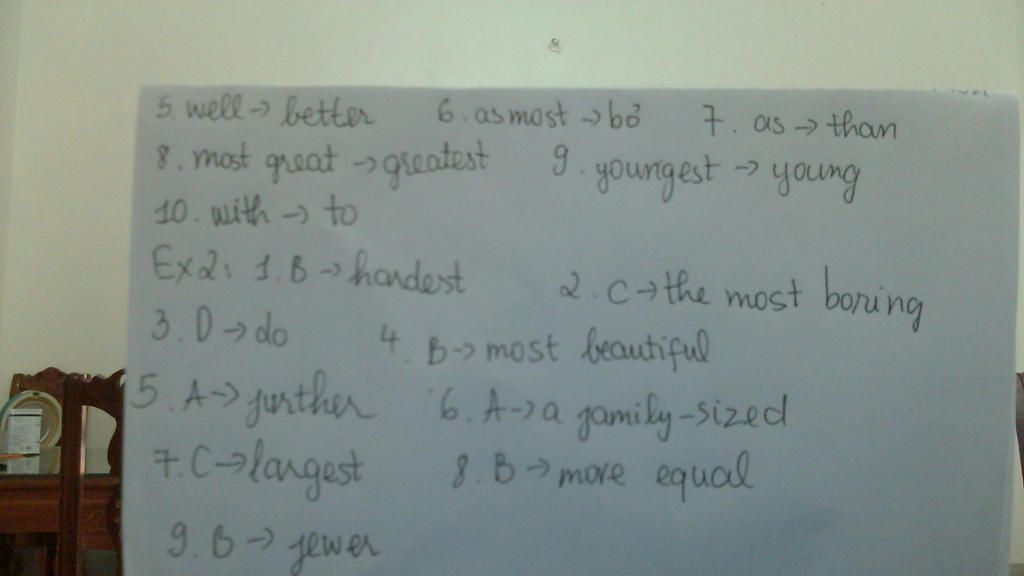 5. well → better 6. as most → bỏ 7. as → than
8. most great → greatest 9. youngest → young
10. with → to
Ex2: 1. B → hardest 2. C → the most boring
3. D → do 4. B → most beautiful
5. A → further 6. A → a family-sized
7. C → largest 8. B → more equal
9. B → fewer